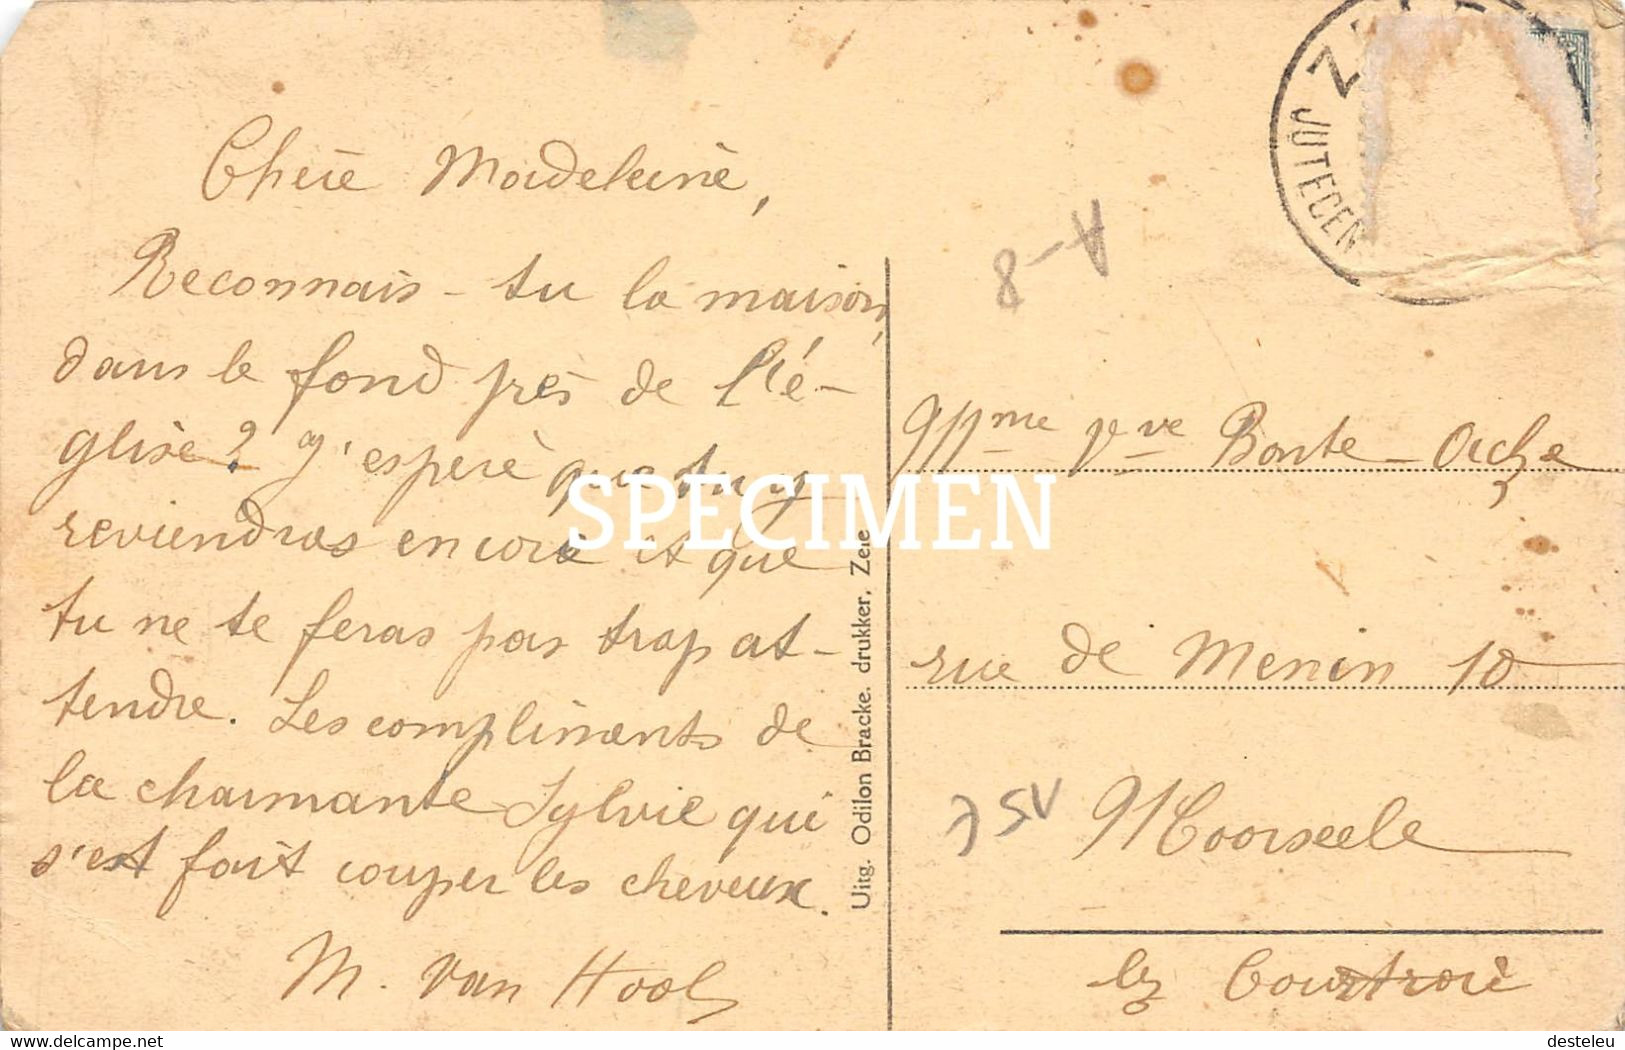 Chère Madeleine,
Reconnais-tu la maison,
dans le fond près de l'é-
glise? J'espère que tu y
reviendras encore et que
tu ne te feras pas trop at-
tendre. Les compliments de
la charmante Sylvie qui
s'est fait couper les cheveux.
M. Van Hool
Uitg. Odilon Bracke, drukker, Zele
JUTECEN
8-A
Mme Vve Bonte-
rue de Menin 10
Moorseele
lez Courtrai
75V
SPECIMEN
delcampe.net
desteleu